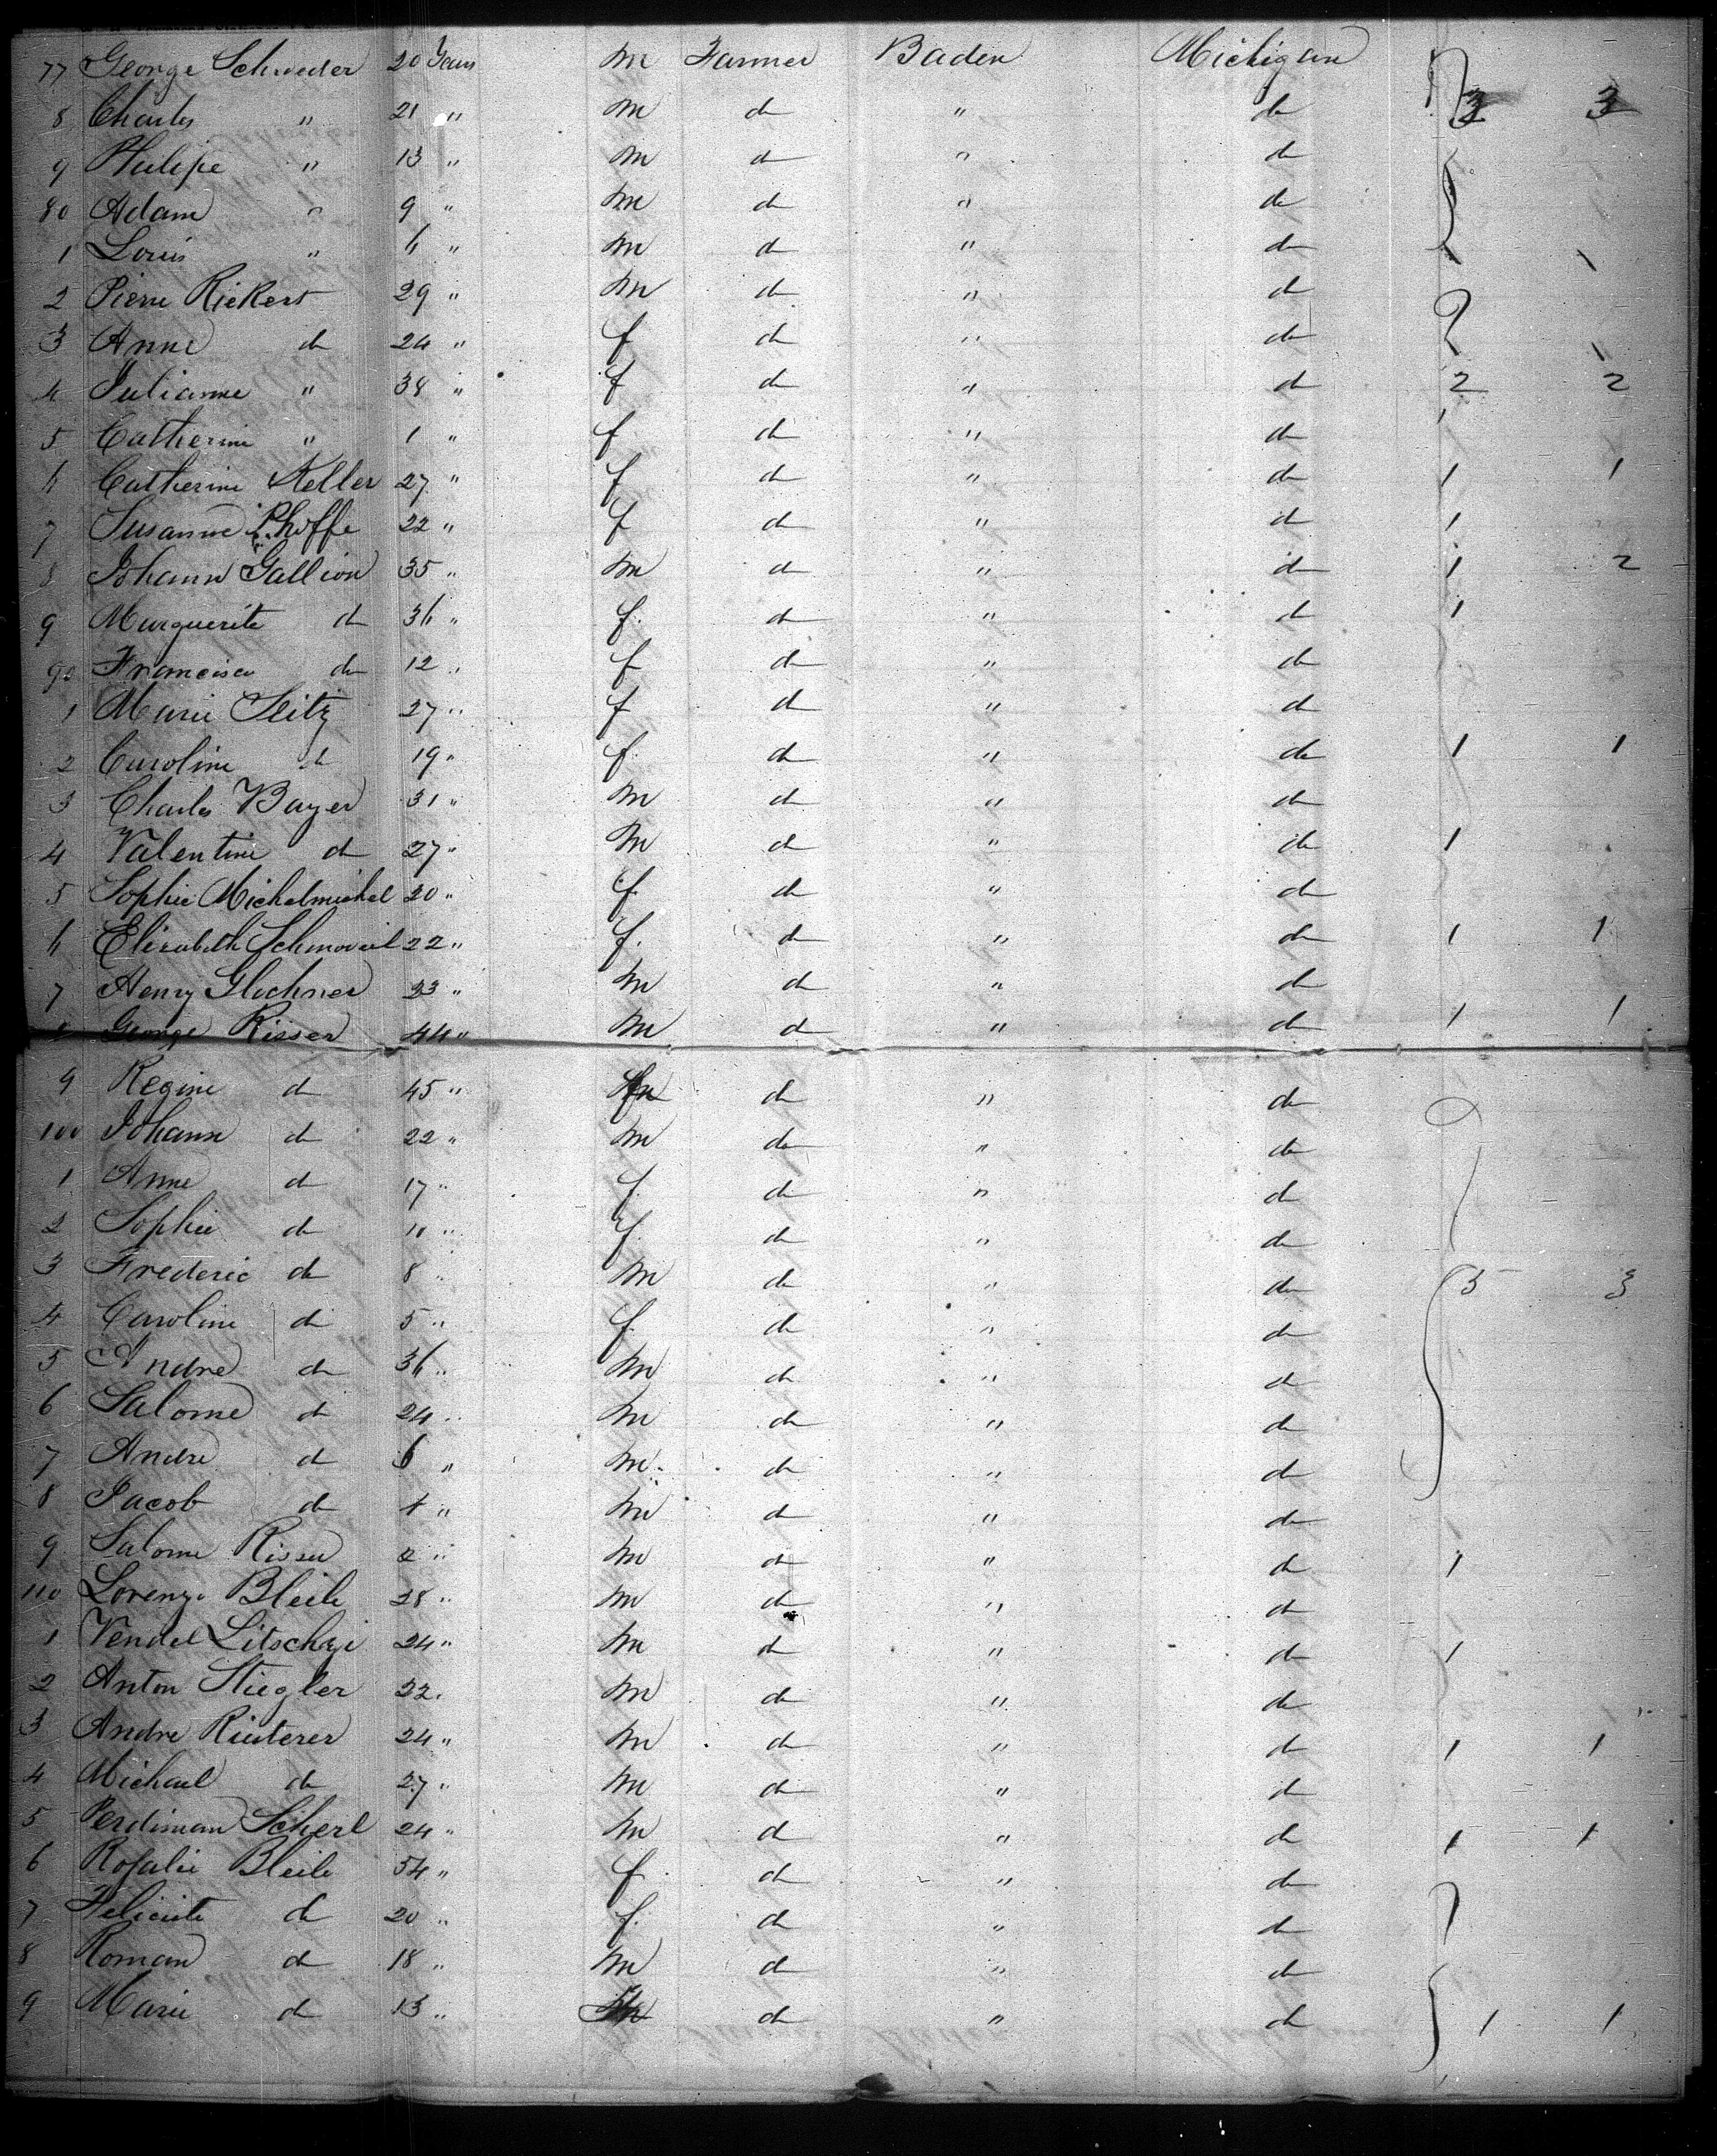 77 George Schneder 20 Years m Farmer Baden Michigan
8 Charles " 21 " m d " do 3 3
9 Philipe " 13 " m d " do
80 Adam " 9 " m d " do
1 Louis " 6 " m d " do
2 Pierre Rickert 29 " m d " d
3 Anne do 24 " f do " do
4 Julianne " 38 " f d " d 2 2
5 Catherine " 1 " f do " do
6 Catherine Keller 27 " f d " do 1 1
7 Susanne 22 " f d " d 1
8 Johann Gallion 35 " m d " d 1 2
9 Marguerite d 36 " f d " d 1
90 Francisca do 12 " f d " do
1 Marie Seitz 27 " f d " d
2 Caroline do 19 " f. do " do 1 1
3 Charles Bayer 31 " m d " do
4 Valentine d 27 " m d " do 1
5 Sophie Michelmichel 20 " f. do " do
6 Elisabeth 22 " f. d " do 1 1
7 Henry Glochner 23 " m d " d
8 George Risser 44 " m d " do 1 1
9 Regine d 45 " d " do
100 Johann d 22 " m do " do
1 Anne d 17 " f d " d
2 Sophie do 11 " f d " do
3 Frederic do 8 " m do " do 5 3
4 Caroline d 5 " f. do " do
5 Andre do 36 " m do " do
6 Salome d 24 " m do " do
7 Andre d 6 " m do " d
8 Jacob do " m d " do
9 Salome Risser 2 " m d " d 1
110 Lorenzo Bleile 28 " m do " do
1 Vendel Litschgi 24 " m d " d 1
2 Anton Stiegler 22. m d " do
3 Andre 24 " m do " do 1 1
4 Michael do 27 " m do " d
5 Scherl 24 " m d " d 1 1
6 Rosalie Bleile 54 " f do " do
7 Felicite d 20 " f. d " do
8 Roman d 18 " m d " do
9 Marie d 13 " d " d 1 1